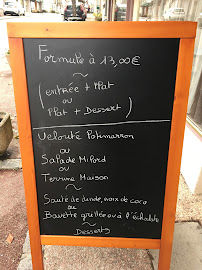 Formule à 13,00€
~
(entrée + Plat
ou
Plat + Dessert)
Velouté Potimarron
ou
Salade Milord
ou
Terrine Maison
~
Sauté de dinde, noix de coco
ou
Bavette grillée ou à l'échalote
~
Desserts